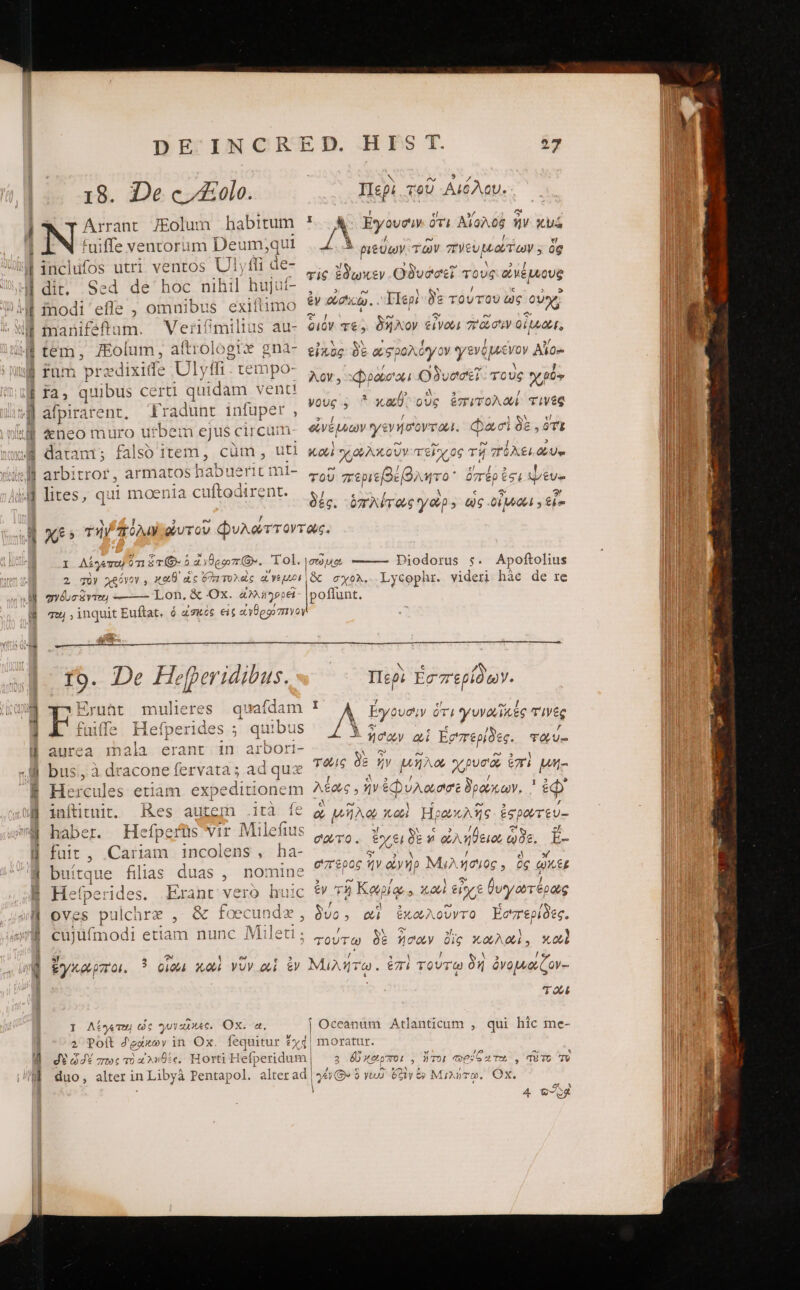 DE INCRED. HIST. 27
18. De Æolo.
NArrant Æolum habitum
fuiſſe ventorum Deum; qui
incluſos utri ventos Ulyſſi de-
dit. Sed de hoc nihil hujuſ-
modi eſſe, omnibus exiſtimo
manifeſtum. Veriſimilius au-
tem, Æolum, aſtrologiæ gna-
rum prædixiſſe Ulyſſi tempo-
ra, quibus certi quidam venti
aſpirarent. Tradunt inſuper,
æneo muro urbem ejus circum-
datam; falsò item, cùm, uti
arbitror, armatos habuerit mi-
lites, qui mœnia cuſtodirent.
Περὶ τοῦ Αἰόλου.
¹ Λέγουσιν ὅτι Αἴολος ἦν κυ-
ριεύων τῶν πνευμάτων, ὅς
τις ἔδωκεν Ὀδυσσεῖ τοὺς ἀνέμους
ἐν ἀσκῷ. Περὶ δὲ τούτου ὡς οὐχ
οἷόν τε, δῆλον εἶναι πᾶσιν οἶμαι,
εἰκὸς δὲ ἀςρολόγον γενόμενον Αἴο-
λον, φράσαι Ὀδυσσεῖ τοὺς χρό-
νους, ² καθ᾽ οὓς ἐπιτολαί τινες
ἀνέμων γενήσονται. Φασὶ δὲ, ὅτι
καὶ χαλκοῦν τεῖχος τῇ πόλει αὐ-
τοῦ περιεβέβλητο· ὅπέρ ἐςι ψευ-
δές. ὁπλίτας γὰρ, ὡς οἶμαι, εἶ-
χε, τὴν πόλιν αὐτοῦ φυλάττοντας.
1 Λέγεται ὅτι ἅτ@ ὁ ἄνθρωπ@. Tol.
2 τὸν χρόνον, καθ᾽ ἃς ἐπιτολὰς ἄνεμοι
πνεύσονται —— Lon. & Ox. ἀλληγορεῖ-
ται, inquit Euſtat. ὁ ἀσκὸς εἰς ἀνθρώπινον
σῶμα —— Diodorus 5. Apoſtolius
& σχολ. Lycophr. videri hâc de re
poſſunt.
19. De Heſperidibus.
FErunt mulieres quaſdam
fuiſſe Heſperides; quibus
aurea mala erant in arbori-
bus, à dracone ſervata; ad quæ
Hercules etiam expeditionem
inſtituit. Res autem ità ſe
haber. Heſperus vir Mileſius
fuit, Cariam incolens, ha-
buitque filias duas, nomine
Heſperides. Erant verò huic
oves pulchræ, & fœcundæ,
cujuſmodi etiam nunc Mileti;
Περὶ Ἑσπερίδων.
¹ Λέγουσιν ὅτι γυναῖκές τινες
ἦσαν αἱ Ἑσπερίδες. ταύ-
ταις δὲ ἦν μῆλα χρυσᾶ ἐπὶ μη-
λέας, ἣν ἐφύλασσε δράκων, ² ἐφ᾽
ἃ μῆλα καὶ Ἡρακλῆς ἐςρατεύ-
σατο. ἔχει δὲ ἡ ἀλήθεια ὧδε. Ἕ-
σπερος ἦν ἀνὴρ Μιλήσιος, ὃς ᾤκει
ἐν τῇ Καρίᾳ, καὶ εἶχε θυγατέρας
δύο, αἳ ἐκαλοῦντο Ἑσπερίδες.
τούτῳ δὲ ἦσαν ὄϊς καλαὶ, καὶ
ἔγκαρποι, ³ οἷαι καὶ νῦν αἱ ἐν Μιλήτῳ. ἐπὶ τούτῳ δὴ ὀνομάζον-
ται
1 Λέγεται ὡς γυναῖκες. Ox. α.
2 Poſt δράκων in Ox. ſequitur ἔχει
δὲ ὧδέ πως τὸ ἀληθές. Horti Heſperidum
duo, alter in Libyâ Pentapol. alter ad
Oceanum Atlanticum, qui hîc me-
moratur.
3 εὔκαρποι, ἤτοι πρόβατα, τῦτο τὸ
γέν@ ὃ νῦν ἐςὶν ἐν Μιλήτῳ. Ox.
4